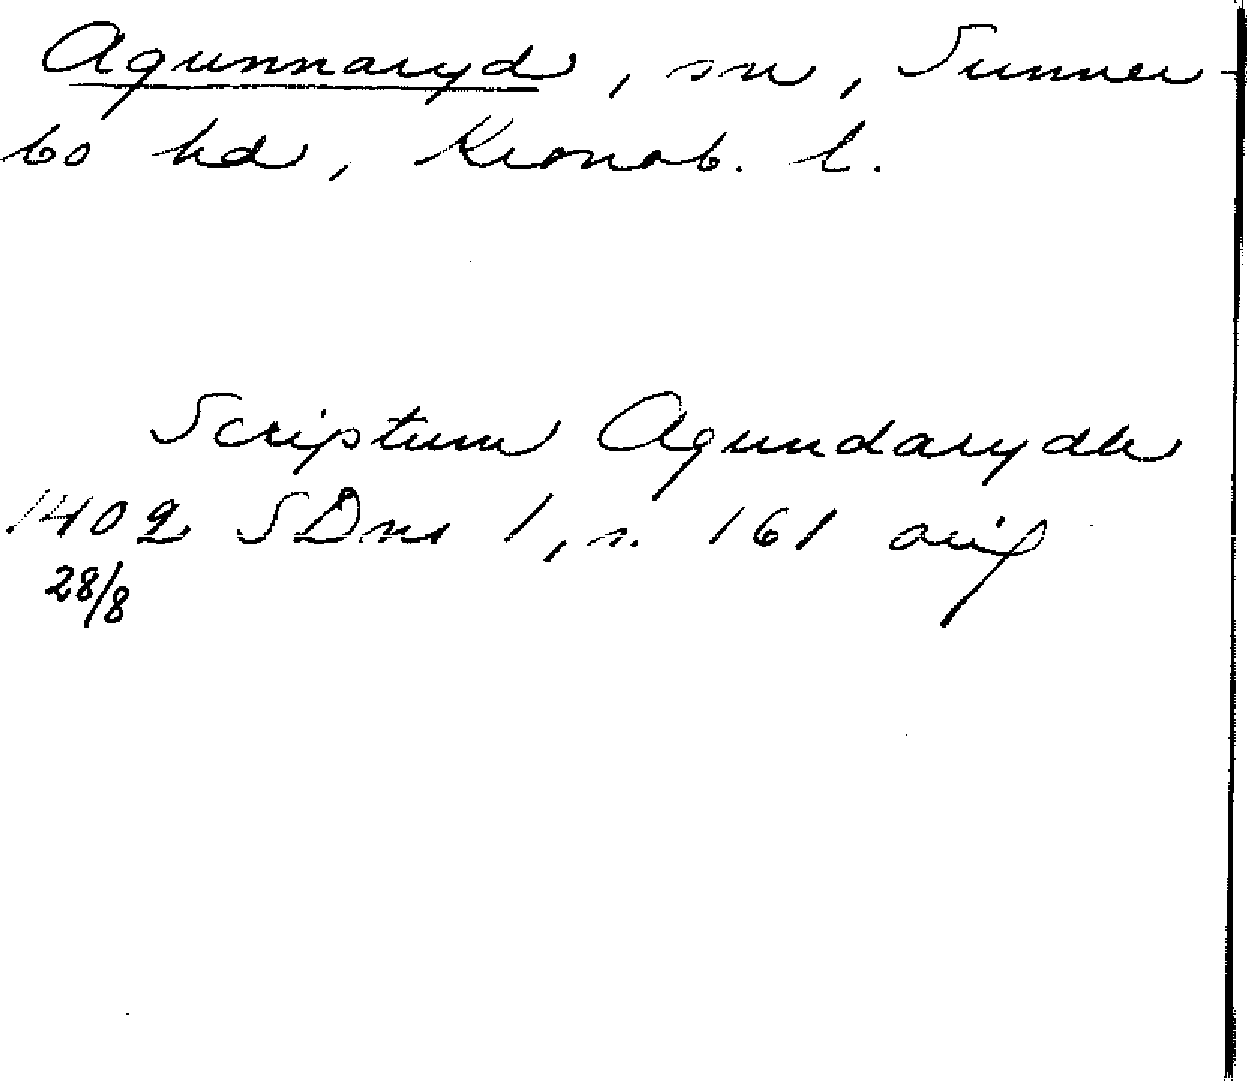 Agunnaryd, sn, Sunner-
bo hd, Kronob. l.
Scriptum Agundarydh
1402 SDns 1, s. 161 orig
28/8